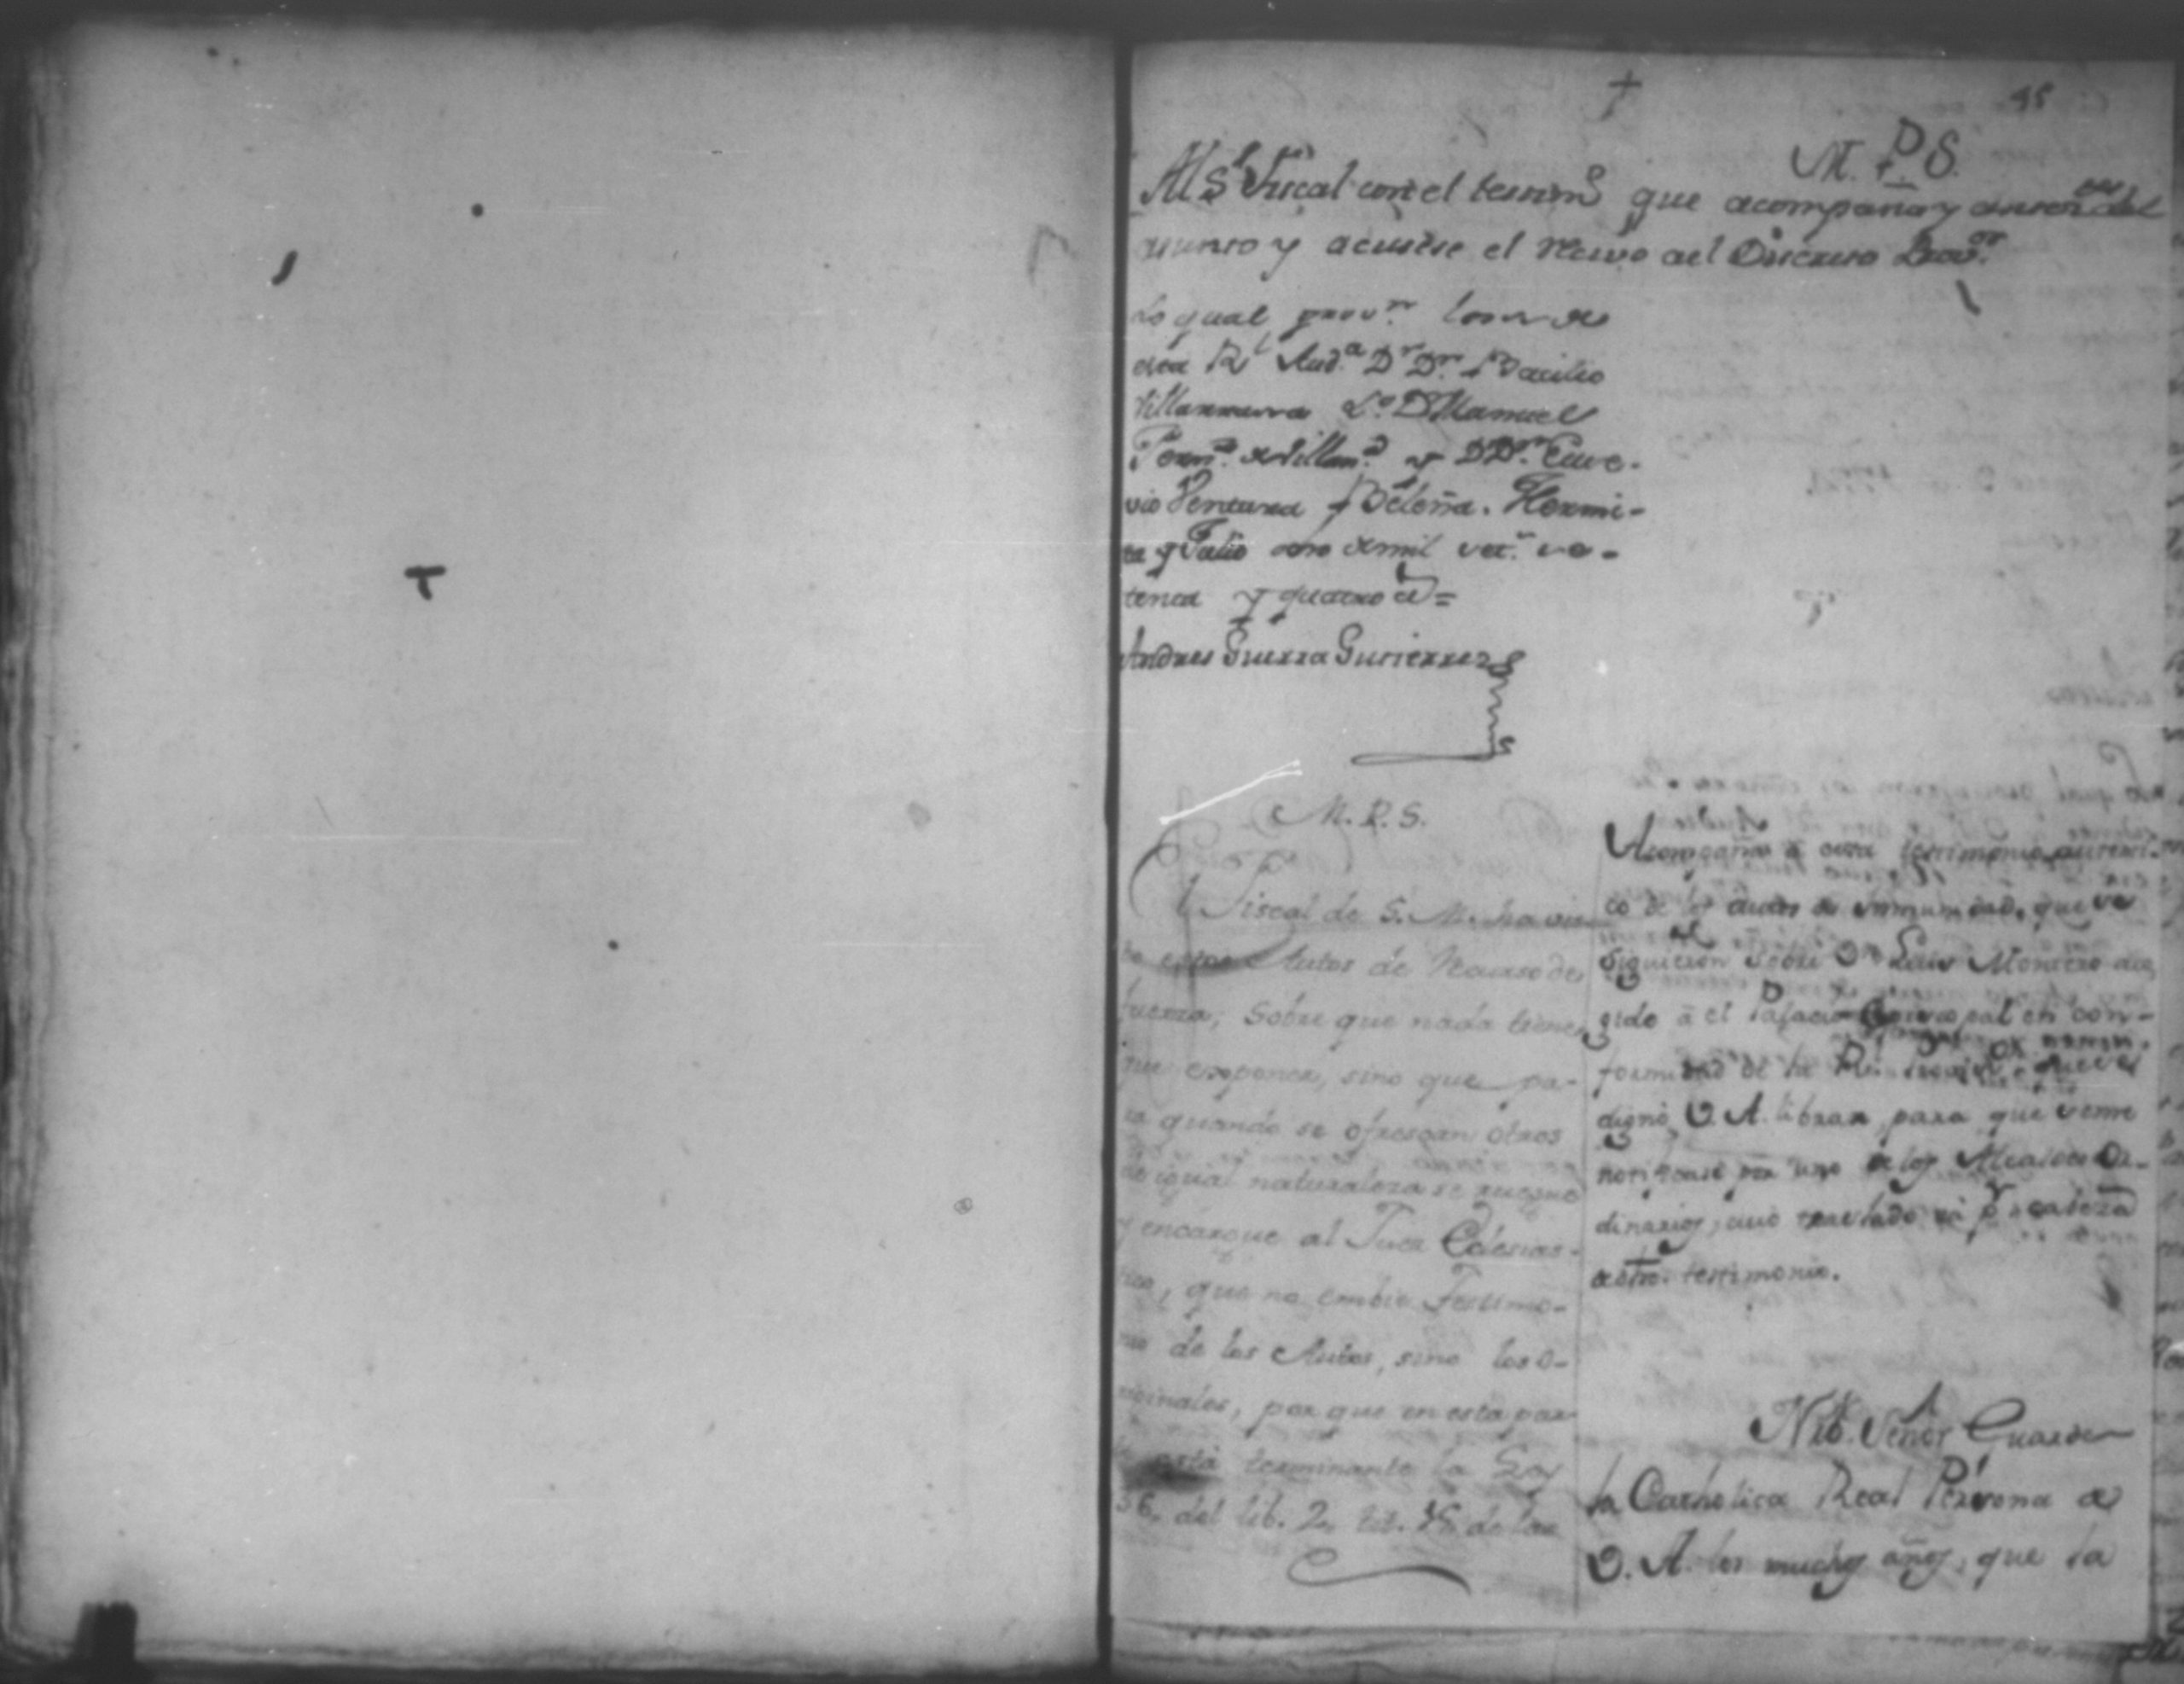 95
M. P. S.
Al S.r Fiscal con el testim.o que acompaña y anteced.tes del
asunto y acusese el recivo al Discreto Prov.or
Lo qual prov.n los s.s de
esta R.l Aud.a D.r D.n Bacilio
Villarrasa L.o D. Manuel
y D D.n Euse-
vio Ventura Beleña. Hermi-
ta y Julio ocho de mil set.s se-
tenta y quatro a.s =
Andres Guerra Gutierrez
M. P. S.
El Fiscal de S. M. ha vis-
to estos Autos de Recurso de
fuerza; sobre que nada tiene
que exponer, sino que pa-
ra quando se ofrescan otros
de igual naturaleza se ruegue
y encargue al Juez Eclesias-
tico, que no embie Testimo-
nio de los Autos, sino los o-
riginales, por que en esta par-
te está terminante la Ley
36, del lib. 2, tit. 15 de las
Acompaño à esta testimonio autenti-
co de los autos de inmunidad, que se
siguieron sobre el D.n Luis Montero aco-
gido à el Palacio Episcopal en con-
formidad de la R.l Provision que se
dignó V. A. librar, para que se me
notificase por uno de los Alcaldes Or-
dinarios, cuio traslado va p.r cabeza
de dho. testimonio.
Ntro. Señor Guarde
la Catholica Real Persona de
V. A. los muchos años, que la